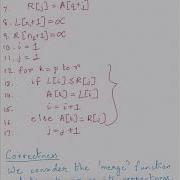 7. R[j] = A[q+j]
8. L[n₁+1] = ∝
9. R[n₂+1] = ∝
10. i = 1
11. j = 1
12. for k = p to r
13. if L[i] ≤ R[j]
14. A[k] = L[i]
15. i = i+1
16. else A[k] = R[j]
17. j = j+1
Correctness
We consider the 'merge' function